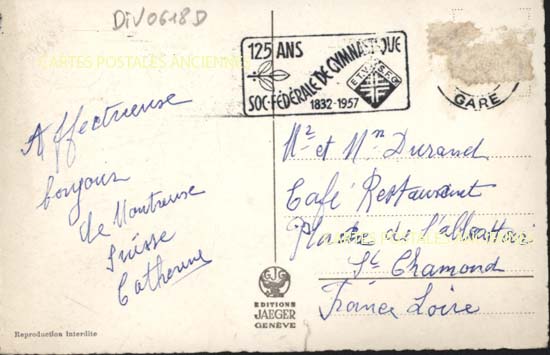 DIV0618D
CARTES POSTALES ANCIENNES
125 ANS
SOC. FÉDÉRALE DE GYMNASTIQUE
1832-1957
E.T.V. S.F.G.
GARE
Affectueuse
bonjour
de Montreuse
Suisse
Catherine
Mr et Mm Durand
Café Restaurant
Place de l'abbattoir
St Chamond
France Loire
CARTES POSTALES ANCIENNES
EDITIONS
JAEGER
GENÈVE
Reproduction interdite